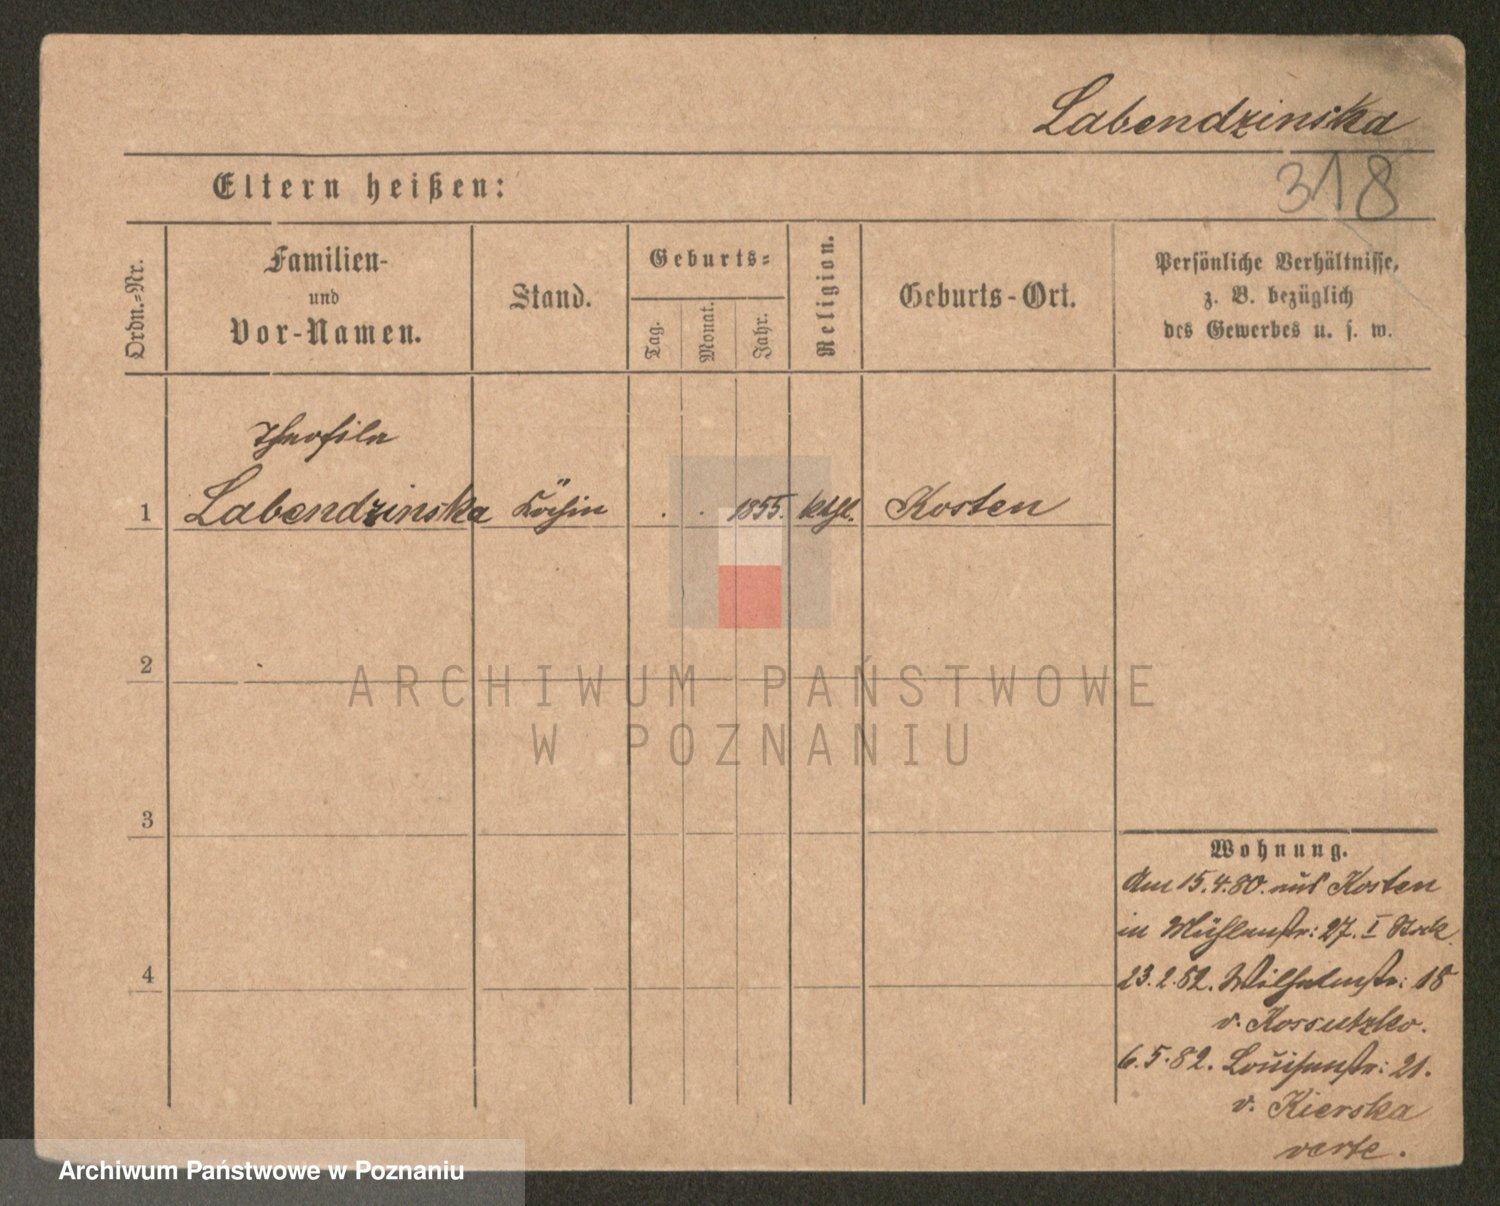 Labendzinska
318
Eltern heißen:
Ordn.-Nr.
Familien-
und
Vor-Namen.
Stand.
Geburts-
Tag.
Monat.
Jahr.
Religion.
Geburts-Ort.
Persönliche Verhältnisse,
z. B. bezüglich
des Gewerbes u. s. w.
Theofila
1 Labendzinska Köchin . . 1855. kthl. Kosten
2
3
4
Wohnung.
Am 15.4.80. aus Kosten
in Mühlenstr: 27. I Stock.
23.2.82. Wilhelmstr: 18
v. Kossutzko.
6.5.82. Louisenstr: 21.
v. Kierska
verte.
ARCHIWUM PAŃSTWOWE
W POZNANIU
Archiwum Państwowe w Poznaniu